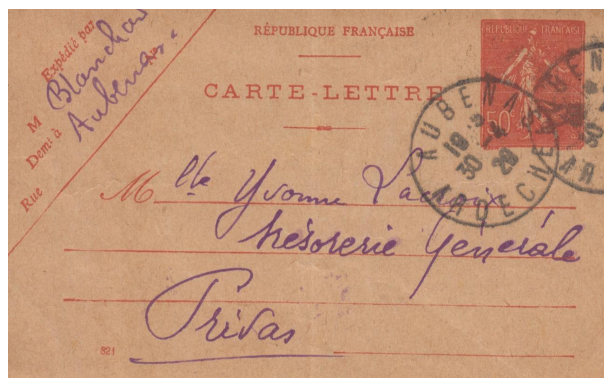 Expédié par
M Blanchard
Demt à Aubenas.
Rue
RÉPUBLIQUE FRANÇAISE
CARTE-LETTRE
REPUBLIQUE FRANÇAISE
50c
AUBENAS
30
29
ARDECHE
Mlle Yvonne Lacroix
Trésorerie Générale
Privas
821